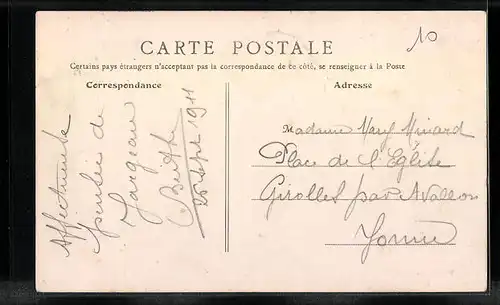 10
CARTE POSTALE
Certains pays étrangers n'acceptant pas la correspondance de ce côté, se renseigner à la Poste
Correspondance
Adresse
Affectueuse
pensée de
Jargeau
Berthe
25 Sept 1911
Madame Minard
Place de l'Eglise
Girolles par Avallon
Yonne